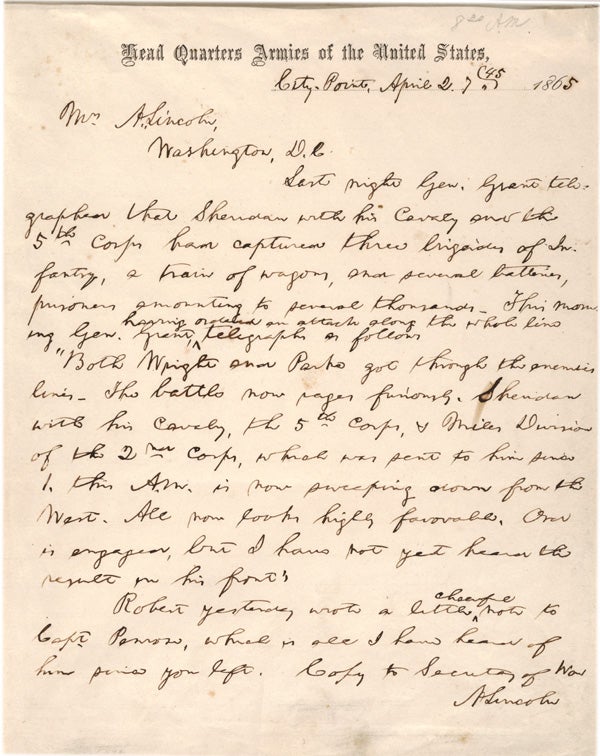 8 00 A.M.
Head Quarters Armies of the United States,
City-Point, April 2. 7/45 1865
Mrs A. Lincoln,
Washington, D.C.
Last night Gen. Grant tele-
graphed that Sheridan with his Cavalry and the
5th Corps had captured three brigades of In-
fantry, a train of wagons, and several batteries,
prisoners amounting to several thousands - This morn-
ing Gen. Grant, having ordered an attack along the whole line
telegraphs as follows
"Both Wright and Parke got through the enemies
lines - The battle now rages furiously. Sheridan
with his Cavalry, the 5th Corps, & Miles Division
of the 2nd Corps, which was sent to him since
1. this A.M. is now sweeping down from the
West. All now looks highly favorable. Ord
is engaged, but I have not yet heard the
result on his front"
Robert yesterday wrote a little cheerful note to
Capt. Penrose, which is all I have heard of
him since you left. Copy to Secretary of War
A. Lincoln